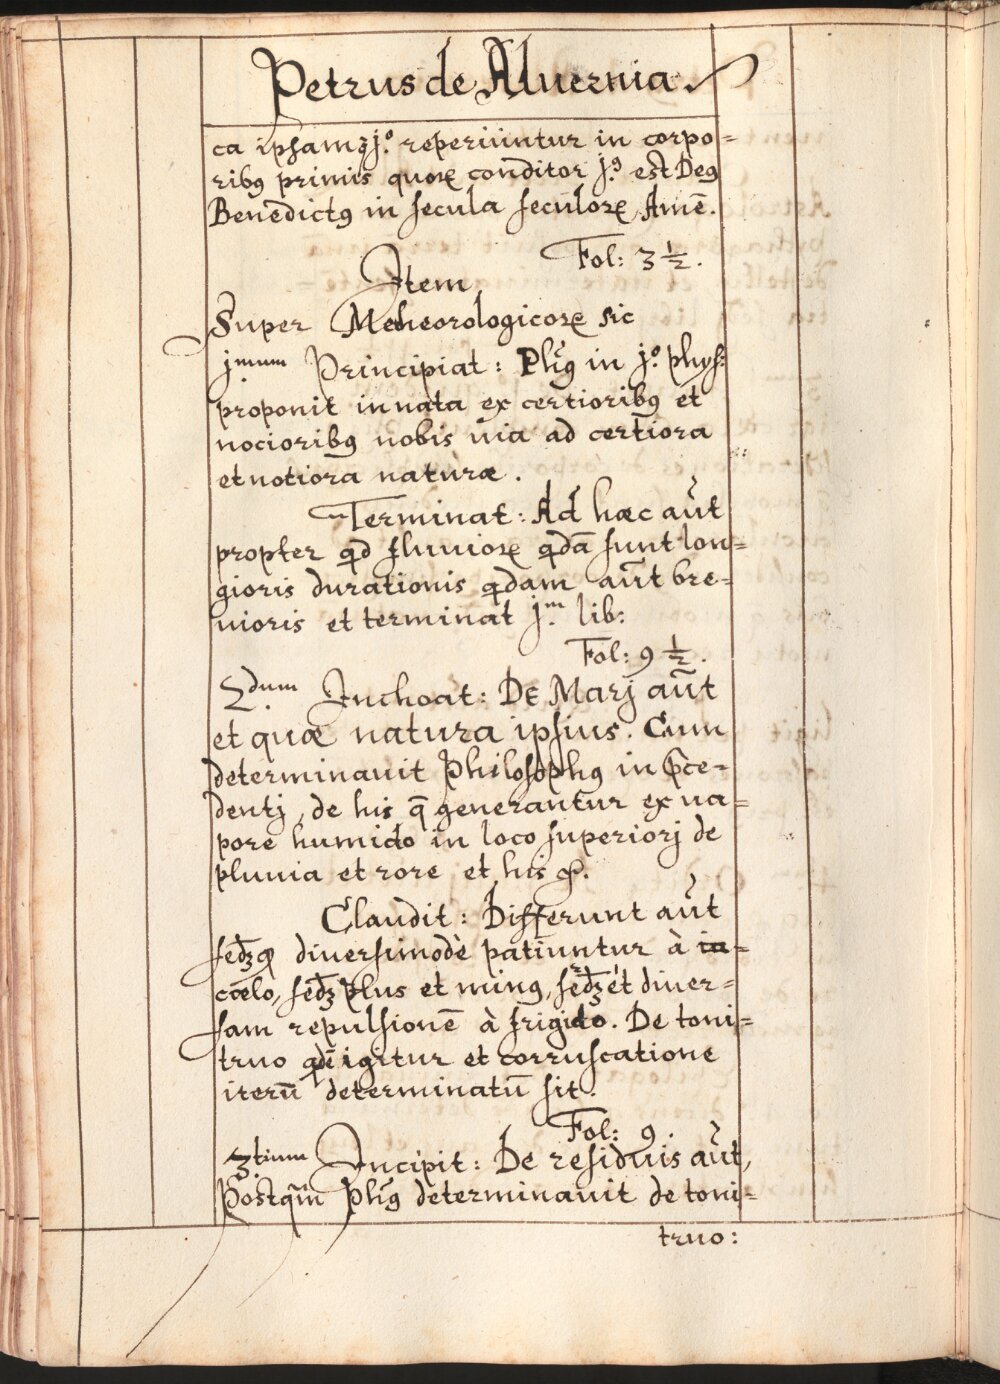 Petrus de Aluernia.
ca ipsamqꝫ j.º reperiuntur in corpo=
ribꝰ primis quoꝝ conditor j.ꝰ est Deꝰ
Benedictꝰ in secula seculoꝝ Amē.
Fol: 3 ½.
Item
Super Metheorologicoꝝ sic
j.mum Principiat: Phūs in j.º phys:
proponit innata ex certioribꝰ et
nocioribꝰ nobis uia ad certiora
et notiora naturæ.
Terminat: Ad hæc aūt
propter qd fluuioꝝ qdā sunt lon=
gioris durationis qdam aūt bre=
uioris et terminat j.m lib:
Fol: 9 ½.
2.dum Inchoat: De Marj aūt
et quæ natura ipsius. Cum
determinauit Philosophꝰ in p̄ce=
dentj, de his q̄ generantur ex ua=
pore humido in loco superiorj de
pluuia et rore et his
Claudit: Differunt aūt
diuersimodè patiuntur à
cœlo, sedꝫ plus et minꝰ, sedꝫ et diuer=
sam repulsionē à frigido. De toni=
truo igitur et corruscatione
iterū determinatū sit.
Fol: 9.
3.tium Incipit: De residuis aūt,
Postqm̄ Phūs determinauit de toni=
truo: